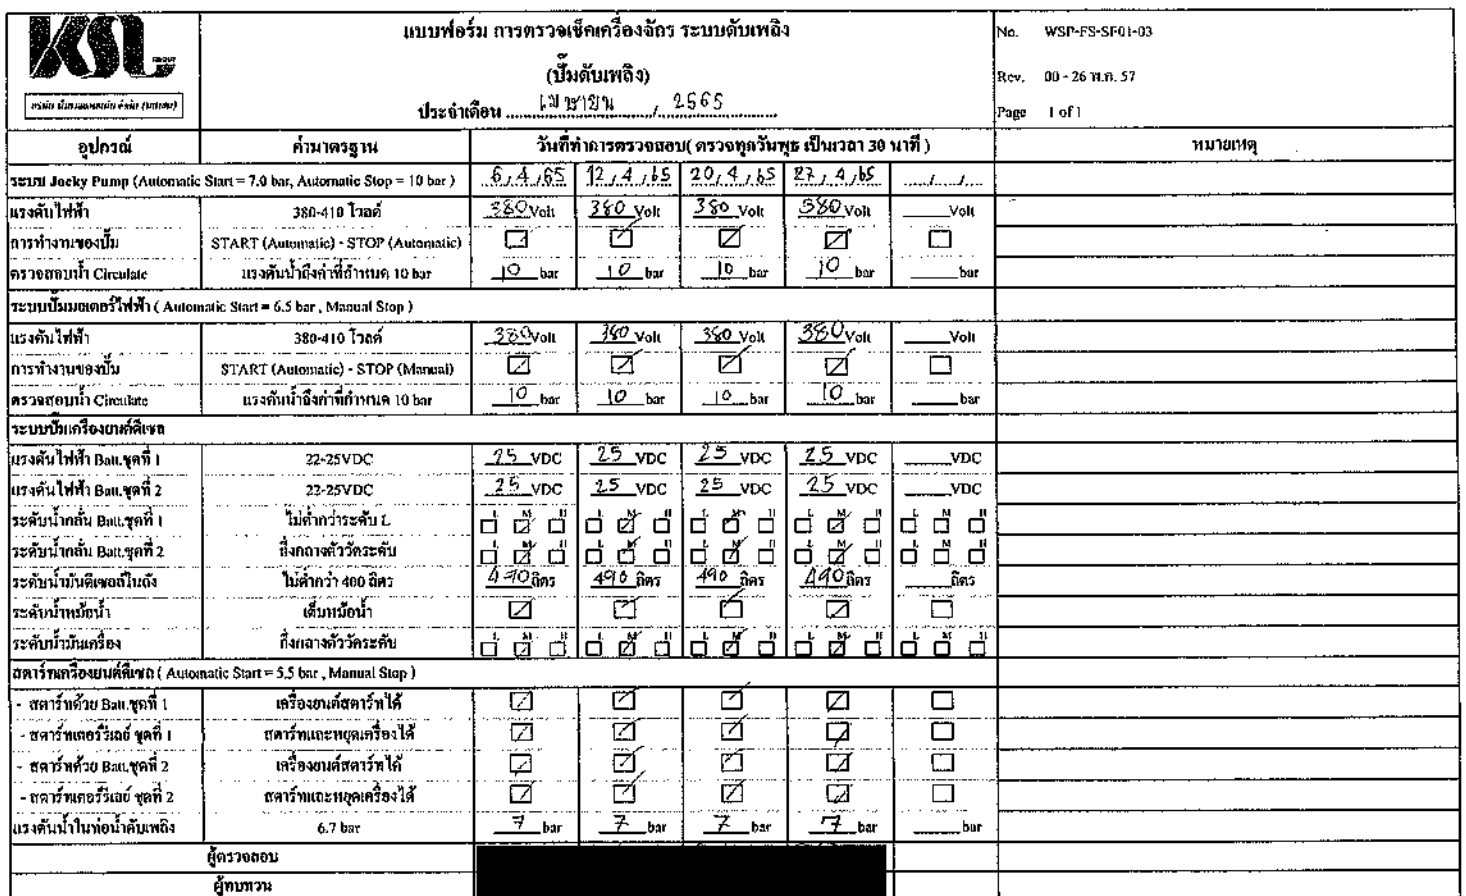 KSL
GROUP
บริษัท น้ำตาลขอนแก่น จำกัด (มหาชน)
แบบฟอร์ม การตรวจเช็คเครื่องจักร ระบบดับเพลิง
(ปั๊มดับเพลิง)
ประจำเดือน เมษายน / 2565
No. WSP-FS-SF01-03
Rev. 00 - 26 พ.ค. 57
Page 1 of 1
อุปกรณ์ ค่ามาตรฐาน วันที่ทำการตรวจสอบ( ตรวจทุกวันพุธ เป็นเวลา 30 นาที ) หมายเหตุ
ระบบ Jocky Pump (Automatic Start = 7.0 bar, Automatic Stop = 10 bar ) 6/4/65 12/4/65 20/4/65 27/4/65 / /
แรงดันไฟฟ้า 380-410 โวลต์ 380 Volt 380 Volt 380 Volt 380 Volt Volt
การทำงานของปั๊ม START (Automatic) - STOP (Automatic)
ตรวจสอบน้ำ Circulate แรงดันน้ำถึงค่าที่กำหนด 10 bar 10 bar 10 bar 10 bar 10 bar bar
ระบบปั๊มมอเตอร์ไฟฟ้า ( Automatic Start = 6.5 bar , Manual Stop )
แรงดันไฟฟ้า 380-410 โวลต์ 380 Volt 380 Volt 380 Volt 380 Volt Volt
การทำงานของปั๊ม START (Automatic) - STOP (Manual)
ตรวจสอบน้ำ Circulate แรงดันน้ำถึงค่าที่กำหนด 10 bar 10 bar 10 bar 10 bar 10 bar bar
ระบบปั๊มเครื่องยนต์ดีเซล
แรงดันไฟฟ้า Batt.ชุดที่ 1 22-25VDC 25 VDC 25 VDC 25 VDC 25 VDC VDC
แรงดันไฟฟ้า Batt.ชุดที่ 2 22-25VDC 25 VDC 25 VDC 25 VDC 25 VDC VDC
ระดับน้ำกลั่น Batt.ชุดที่ 1 ไม่ต่ำกว่าระดับ L L M H L M H L M H L M H L M H
ระดับน้ำกลั่น Batt.ชุดที่ 2 กึ่งกลางตัววัดระดับ L M H L M H L M H L M H L M H
ระดับน้ำมันดีเซลในถัง ไม่ต่ำกว่า 400 ลิตร 490 ลิตร 490 ลิตร 490 ลิตร 490 ลิตร ลิตร
ระดับน้ำหม้อน้ำ เต็มหม้อน้ำ
ระดับน้ำมันเครื่อง กึ่งกลางตัววัดระดับ L M H L M H L M H L M H L M H
สตาร์ทเครื่องยนต์ดีเซล ( Automatic Start = 5.5 bar , Manual Stop )
- สตาร์ทด้วย Batt.ชุดที่ 1 เครื่องยนต์สตาร์ทได้
- สตาร์ทเตอร์รีเลย์ ชุดที่ 1 สตาร์ทและหยุดเครื่องได้
- สตาร์ทด้วย Batt.ชุดที่ 2 เครื่องยนต์สตาร์ทได้
- สตาร์ทเตอร์รีเลย์ ชุดที่ 2 สตาร์ทและหยุดเครื่องได้
แรงดันน้ำในท่อน้ำดับเพลิง 6.7 bar 7 bar 7 bar 7 bar 7 bar bar
ผู้ตรวจสอบ
ผู้ทบทวน